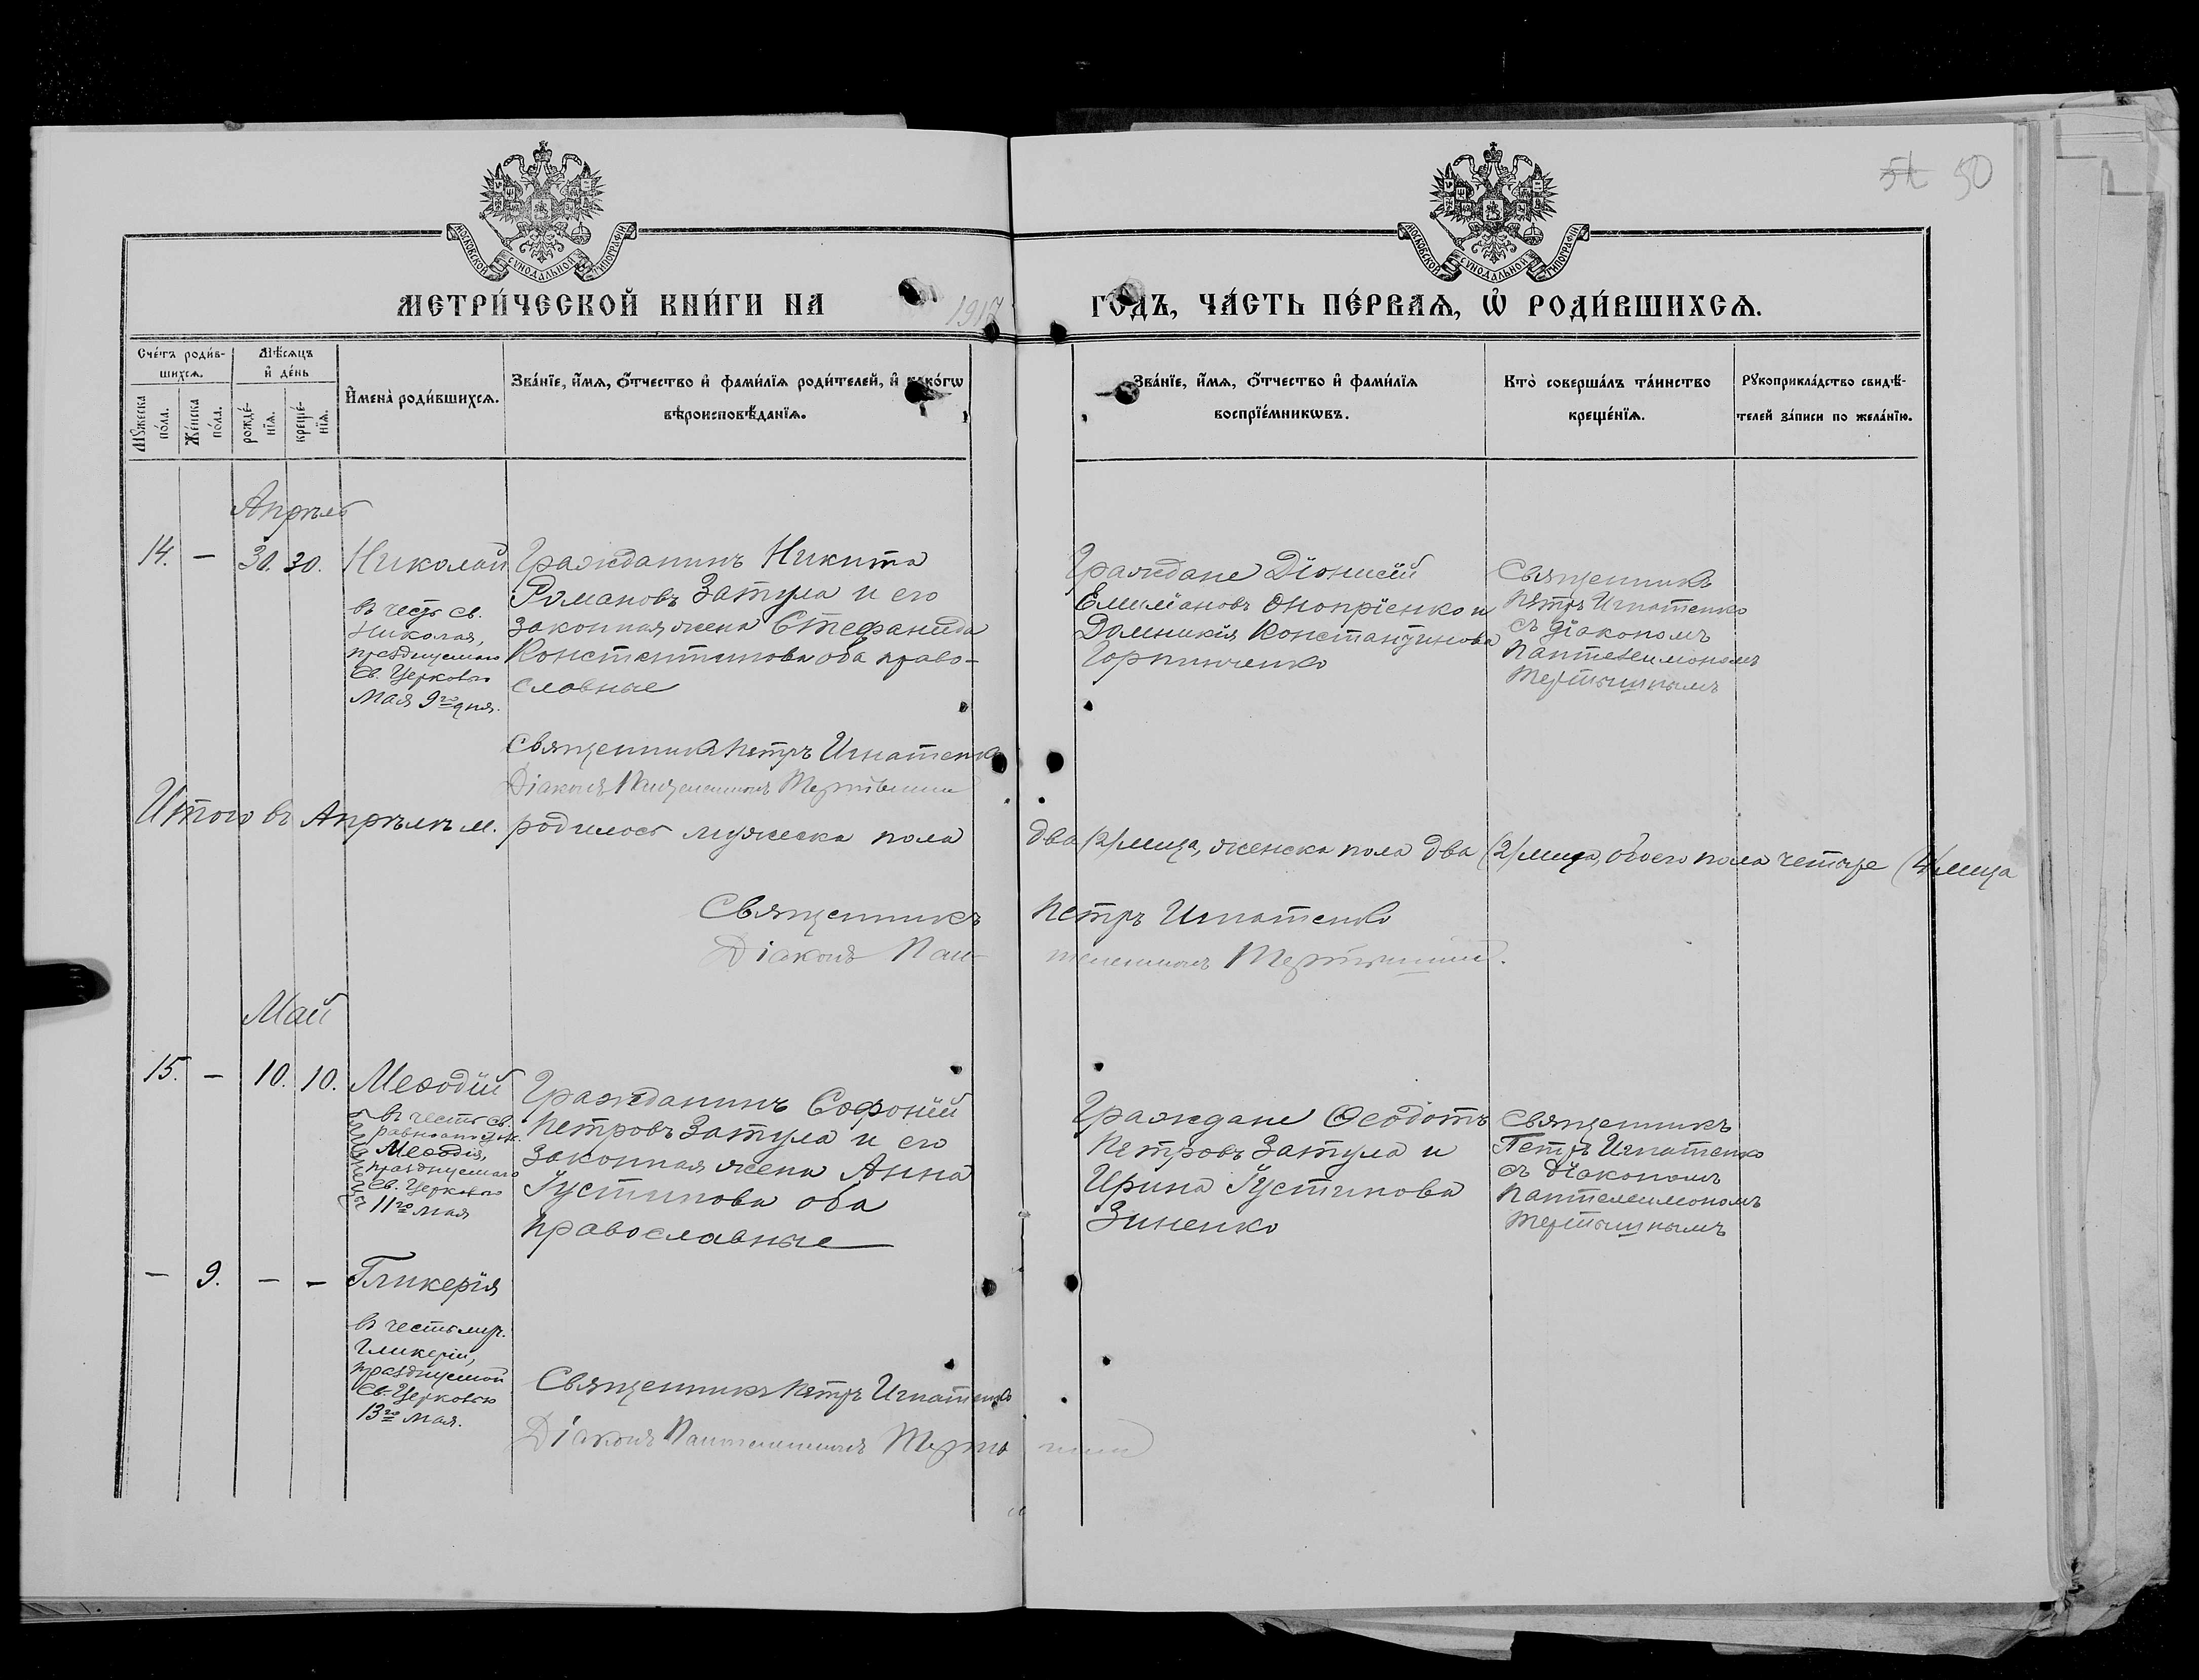 51 50
МОСКОВСКОЙ СѴНОДАЛЬНОЙ ТИПОГРАФІИ
МОСКОВСКОЙ СѴНОДАЛЬНОЙ ТИПОГРАФІИ
МЕТРИ́ЧЕСКОЙ КНИ́ГИ НА 1917 ГО́ДЪ, ЧА́СТЬ ПЕ́РВАѦ, Ѡ҆ РОДИ́ВШИХСѦ.
Сче́тъ роди́в-
шихсѧ.
Мѣ́сѧцъ
и҆ де́нь
Мꙋ́жеска
по́ла.
Же́нска
по́ла.
рожде́-
нїѧ.
креще́-
нїѧ.
И҆мена̀ роди́вшихсѧ.
Зва́нїе, и҆́мѧ, ѻ҆́тчество и҆ фами́лїѧ роди́телей, и҆ како́гѡ
вѣроисповѣ́данїѧ.
Зва́нїе, и҆́мѧ, ѻ҆́тчество и҆ фами́лїѧ
воспрїе́мникѡвъ.
Кто̀ соверша́лъ та́инство
креще́нїѧ.
Рꙋкоприкла́дство свидѣ́-
телей за́писи по жела́нїю.
Апрѣль
14. — 30. 30. Николай
въ честь св.
Николая,
празднуемаго
Св. Церковью
Мая 9го дня.
Гражданинъ Никита
Романовъ Затула и его
законная жена Стефанида
Константинова оба право-
славные
Граждане Діонисій
Емиліановъ Оноприенко и
Домникія Константинова
Горпинченко
Священникъ
Петръ Игнатенко
съ діакономъ
Пантелеимономъ
Тертышнымъ
Священникъ Петръ Игнатенко
Діаконъ Пантелеимонъ Тертышный
Итого въ Апрѣлѣ м. родилось мужеска пола два (2) лица, женска пола два (2) лица, обоего пола четыре (4) лица
Священникъ Петръ Игнатенко
Діаконъ Пантелеимонъ Тертышный.
Май
15. — 10. 10. Меѳодій
въ честь св.
равноапостж.
Меѳодія,
празднуемаго
Св. Церковью
11го мая
Близнецы
Гражданинъ Софоній
Петровъ Затула и его
законная жена Анна
Іустинова оба
православные
Граждане Ѳеодотъ
Петровъ Затула и
Ирина Іустинова
Зиненко
Священникъ
Петръ Игнатенко
съ діакономъ
Пантелеимономъ
Тертышнымъ
— 9. — — Гликерія
въ честь муч.
Гликеріи,
празднуемой
Св. Церковью
13го мая.
Священникъ Петръ Игнатенко
Діаконъ Пантелеимонъ Тертышный